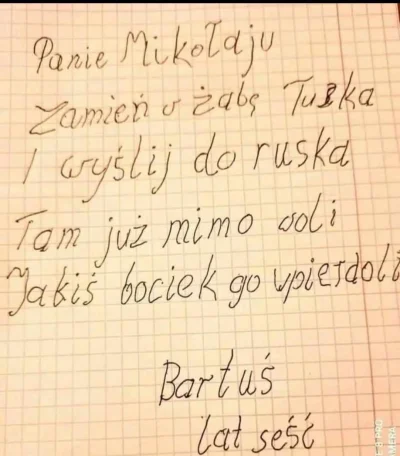 Panie Mikołaju
Zamień w żabę Tuska
I wyślij do ruska
Tam już mimo woli
Jakiś bociek go wpierdoli
Bartuś
lat seść